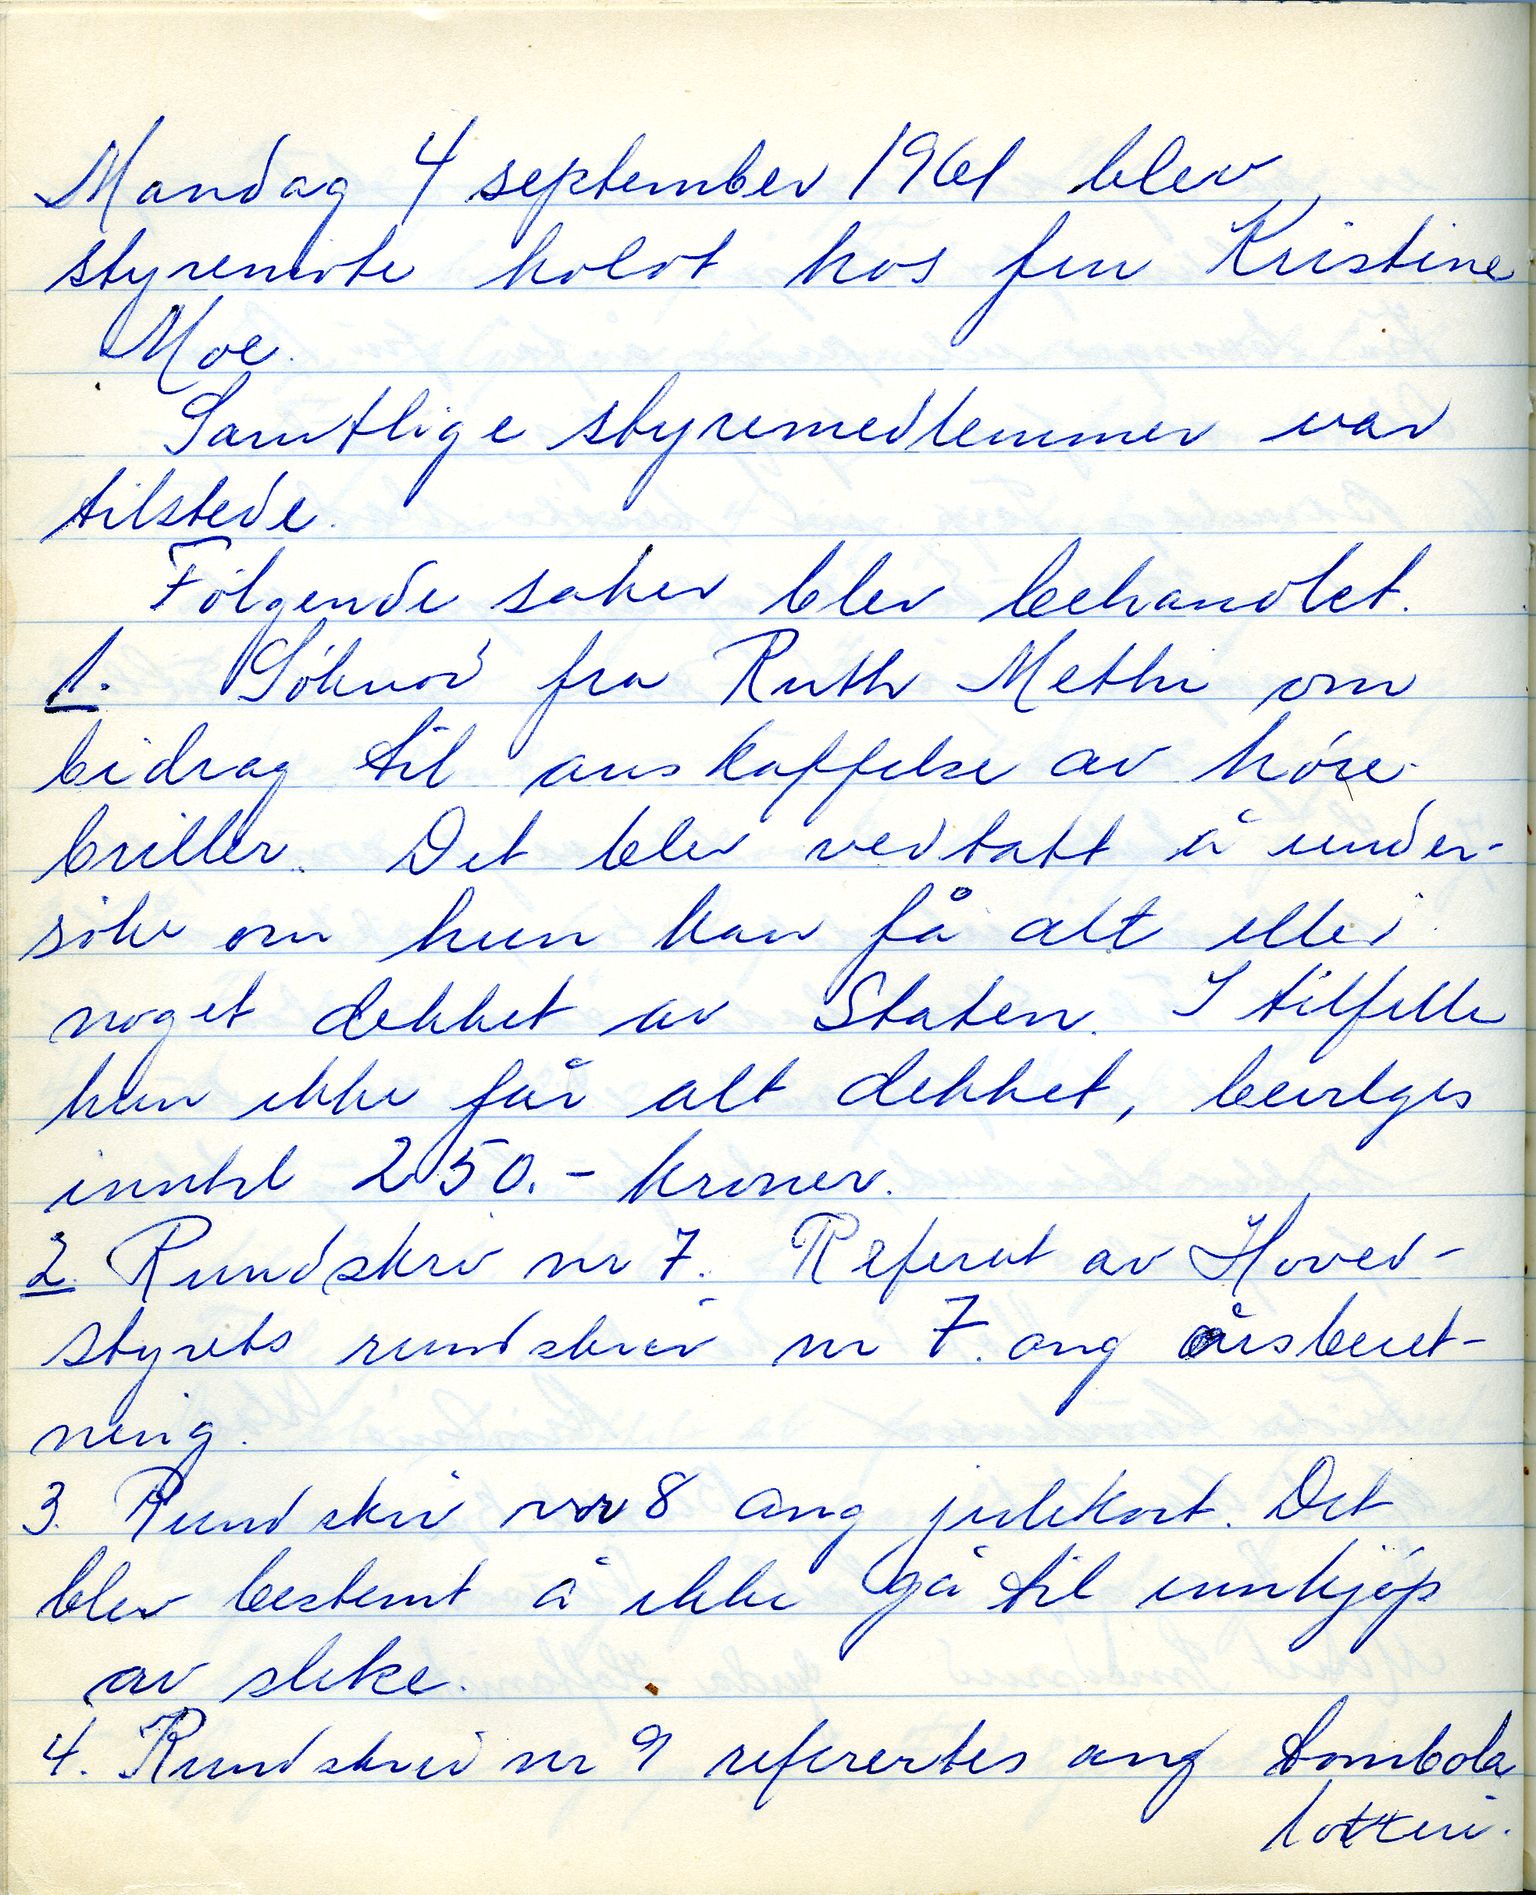 Mandag 4 september 1961 blev
styremöte holdt hos fru Kristine
Moe.
Samtlige styremedlemmer var
tilstede.
Fölgende saker blev behandlet.
1. Söknad fra Ruth Methi om
bidrag til anskaffelse av höre-
briller. Det blev vedtatt å under-
söke om hun kan få alt eller
noget dekket av Staten. I tilfelle
hun ikke får alt dekket, bevilges
inntil 250.- kroner.
2. Rundskriv nr 7. Referat av Hoved-
styrets rundskriv nr 7. ang årsberet-
ning.
3. Rundskriv nr 8 ang julekort. Det
blev bestemt å ikke gå til innkjöp
av slike.
4. Rundskriv nr 9 refertes ang tombola
lotteri.